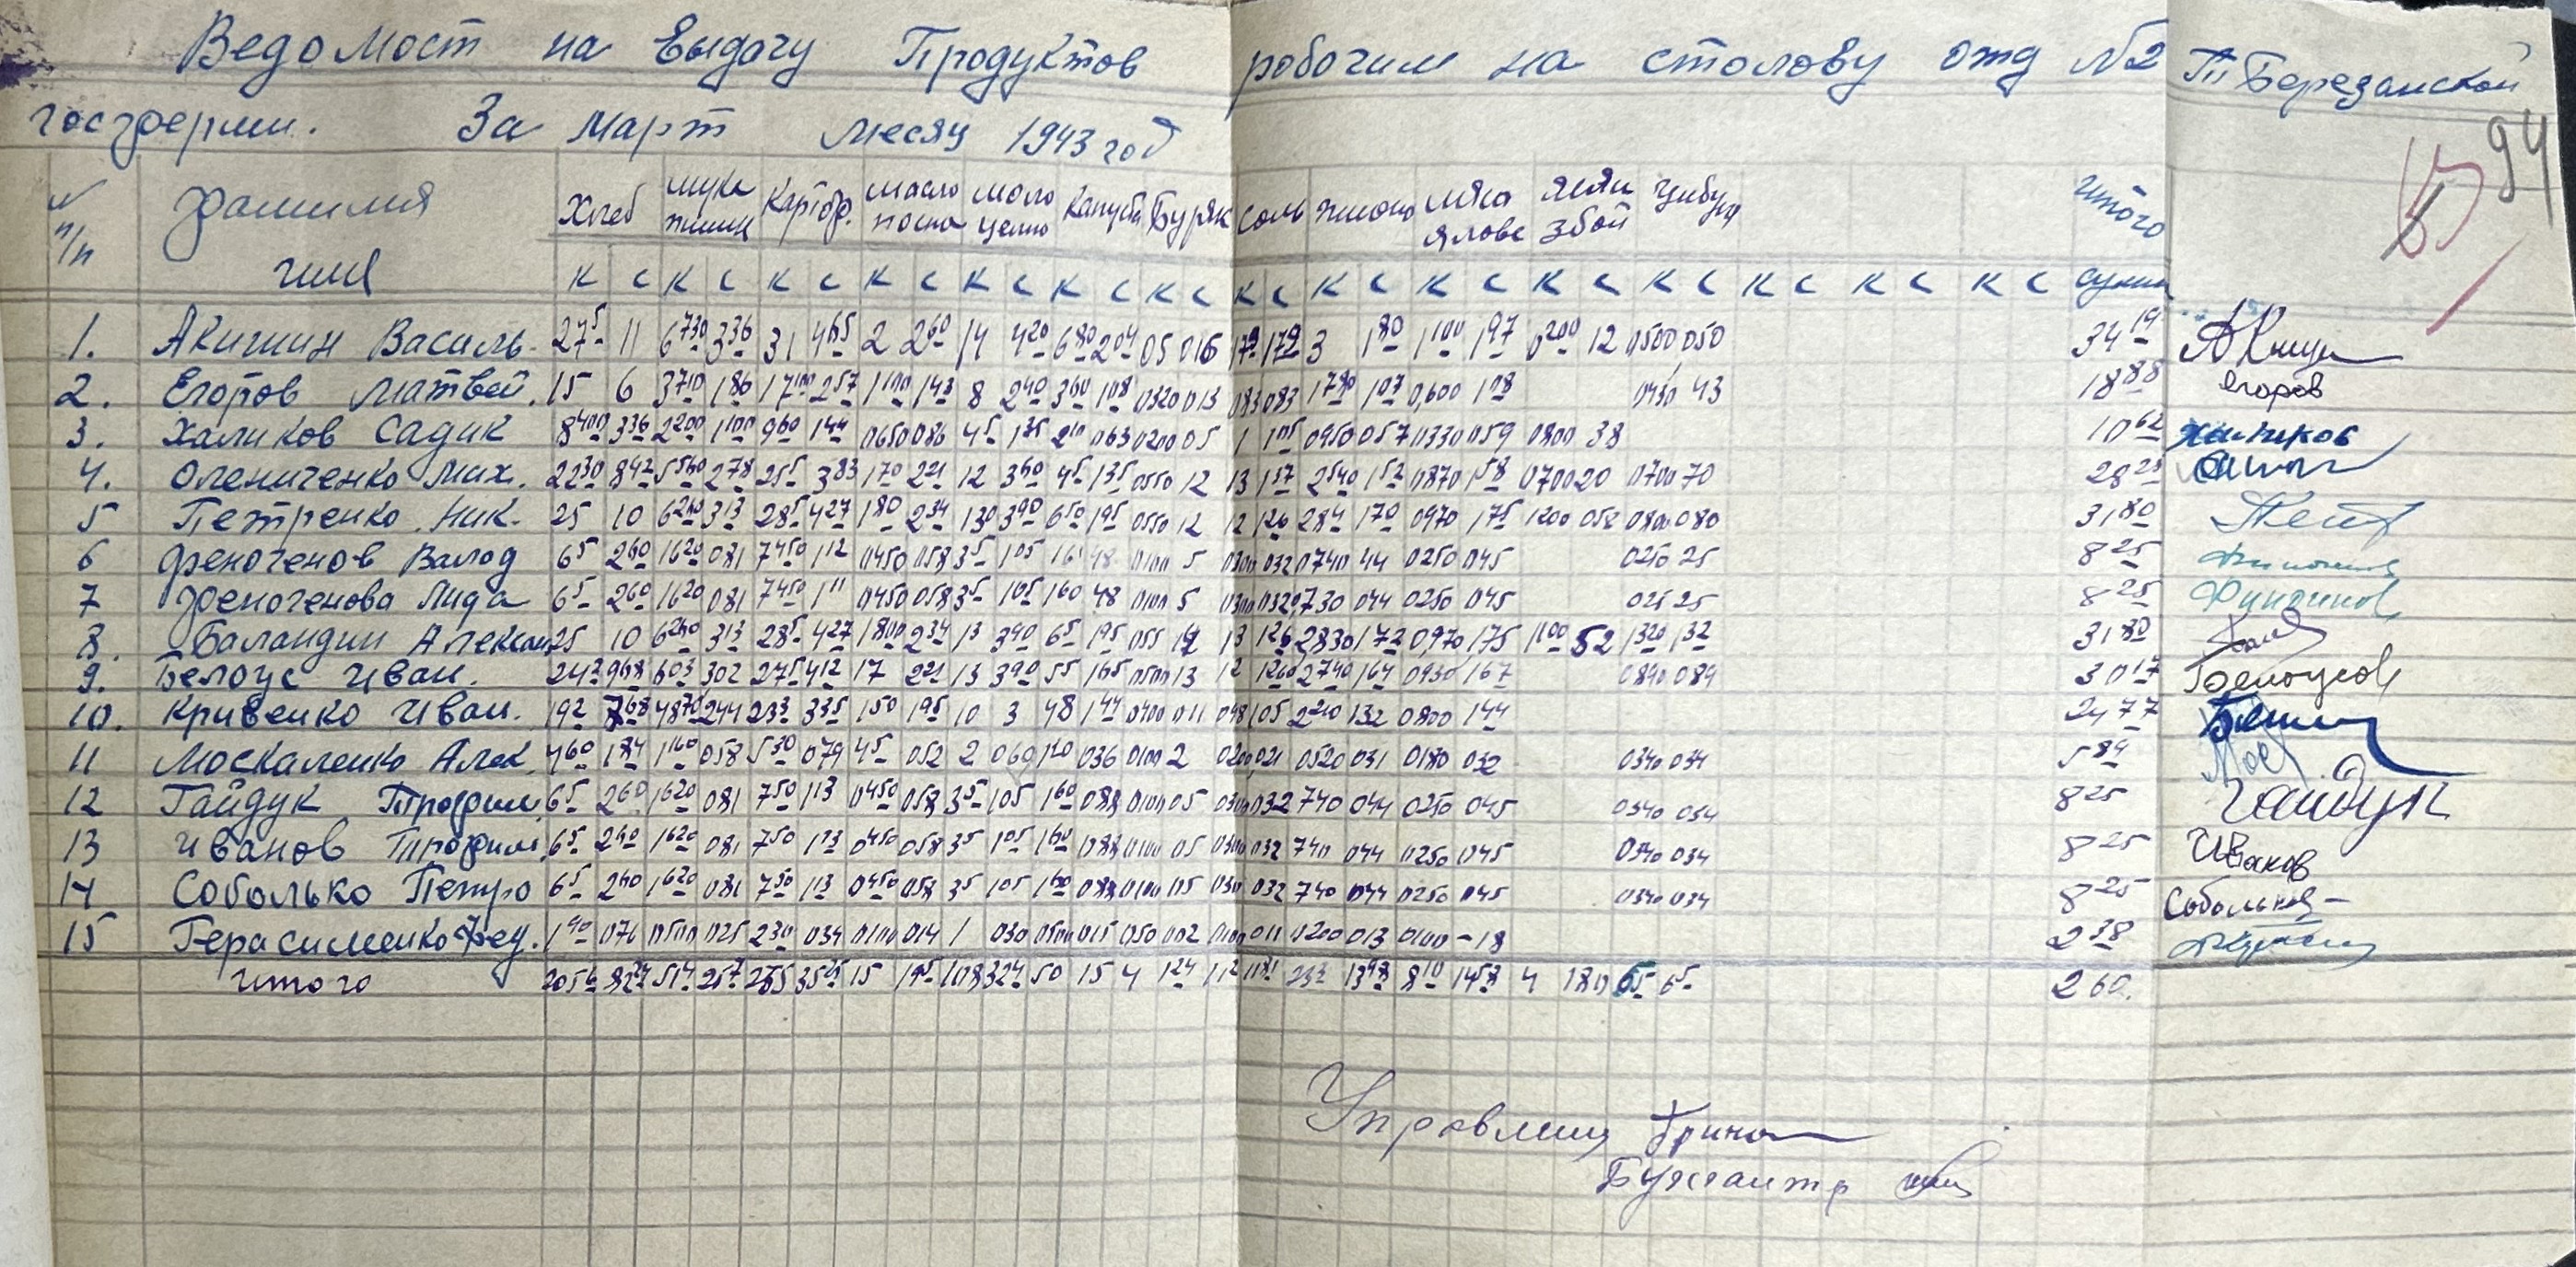 Ведомост на Выдачу Продуктов робочим на столову отд №2 Березанской
госферми. За Март месяц 1943 год
94
№ п/п Фамилия Хлеб мука пшин Картоф. масло посно моло цельно Капуста Буряк Соль пшоно мяса ялове мяса збой цибуля итого
имя к с к с к с к с к с к с к с к с к с к с к с к с к с к с к с сума
1. Акишин Василь. 27⁵ 11 6⁷³⁰ 3³⁶ 31 4⁶⁵ 2 2⁶⁰ 14 4²⁰ 6⁸⁰ 2⁰⁴ 05 016 1⁷⁹ 1⁷⁹ 3 1⁸⁰ 1¹⁰⁰ 1⁹⁷ 0²⁰⁰ 12 0500 050 34¹⁹
2. Егоров Матвей. 15 6 3⁷¹⁰ 1⁸⁶ 17¹⁰⁰ 2⁵⁷ 1¹⁰⁰ 1⁴³ 8 2⁴⁰ 3⁶⁰ 1⁰⁸ 0320 013 083 083 1⁷⁸⁰ 1⁰⁷ 0,600 1⁰⁸ 0430 43 18⁸⁸ Егоров
3. Халиков Садик 8⁴⁰⁰ 3³⁶ 2²⁰⁰ 1¹⁰⁰ 9⁶⁰ 1⁴⁴ 0650 086 4⁵ 1³⁵ 2¹⁰ 063 0200 05 1 1⁰⁵ 0950 057 0330 059 0800 38 10⁶² Халиков
4. Олениченко Мих. 22³⁰ 8⁴² 5⁵⁶⁰ 2⁷⁸ 25⁵ 3⁸³ 1⁷⁰ 2²¹ 12 3⁶⁰ 4⁵ 1³⁵ 0550 12 13 1³⁷ 2⁵⁴⁰ 1⁵² 0870 1⁵⁸ 0700 20 0700 70
5 Петренко Ник. 25 10 6²⁶⁰ 3¹³ 28⁵ 4²⁷ 1⁸⁰ 2³⁴ 130 3⁹⁰ 6⁵⁰ 1⁹⁵ 0550 12 12 1²⁶ 2⁸⁴ 1⁷⁰ 0970 1⁷⁵ 1200 052 0800 080 31⁸⁰
6 Феногенов Валод 6⁵ 2⁶⁰ 1⁶²⁰ 081 7⁴⁵⁰ 1¹² 0450 058 3⁵ 1⁰⁵ 48 0100 5 0300 032 0740 44 0250 045 0250 25 8²⁵
7 Феногенова Лида 6⁵ 2⁶⁰ 1⁶²⁰ 081 7⁴⁵⁰ 1¹¹ 0450 058 3⁵ 1⁰⁵ 1⁶⁰ 48 0100 5 0300 032 0,730 044 0250 045 025 25 8²⁵
8. Баландин Алексан 25 10 6²⁶⁰ 3¹³ 28⁵ 4²⁷ 1⁸⁰⁰ 2³⁴ 13 3⁹⁰ 6⁵ 1⁹⁵ 055 12 13 1²⁶ 2830 1⁷² 0,970 175 1100 52 1320 132 31⁸⁰
9. Белоус Иван. 24² 9⁶⁸ 6⁰³ 302 27⁵ 4¹² 17 2²¹ 13 3⁹⁰ 5⁵ 1⁶⁵ 0500 13 12 1²⁶⁰ 2⁷⁴⁰ 1⁶⁴ 0930 167 0840 084 30¹⁷ Белоусов
10. Кривенко Иван. 19² 7⁶⁸ 4⁸⁷⁰ 2⁴⁴ 23³ 3³⁵ 1⁵⁰ 1⁹⁵ 10 3 48 1⁴⁴ 0400 011 048 105 2²⁰⁰ 132 0800 144 24⁷⁷
11 Москаленко Алек. 4⁶⁰ 1⁸⁴ 1¹⁶⁰ 058 5³⁰ 079 4⁵ 052 2 060 1²⁰ 036 0100 2 0200 021 0520 031 0180 032 0340 034 5⁸⁴ Мос
12 Гайдук Трофим. 6⁵ 2⁶⁰ 1⁶²⁰ 081 7⁵⁰ 1¹³ 0450 058 3⁵ 105 1⁶⁰ 088 0100 05 0300 032 740 044 0250 045 0340 034 8²⁵ Гайдук
13 Иванов Трофим. 6⁵ 2⁶⁰ 1⁶²⁰ 081 7⁵⁰ 1¹³ 0450 058 35 1⁰⁵ 1⁶⁰ 088 0100 05 0300 032 740 044 0250 045 0340 034 8²⁵ Иванов
14 Соболько Петро 6⁵ 2⁶⁰ 1⁶²⁰ 081 7⁵⁰ 1¹³ 0450 058 35 105 1⁶⁰ 088 0100 05 030 032 740 044 0250 045 0340 034 8²⁵
15 Герасименко Фед. 1⁹⁰ 076 0500 025 2³⁰ 034 0100 014 1 030 0500 015 050 002 0100 011 0200 013 0100 - 18 2³⁸
итого 205⁶ 82²⁴ 51⁴ 25⁷ 235 35²⁵ 15 19⁵ 108 32⁴ 50 15 4 1²⁴ 11² 1181 23² 13⁹⁸ 8¹⁰ 14⁵⁸ 4 180 65 6⁵ 260.
Управлиющ Грино
Бухгалтр